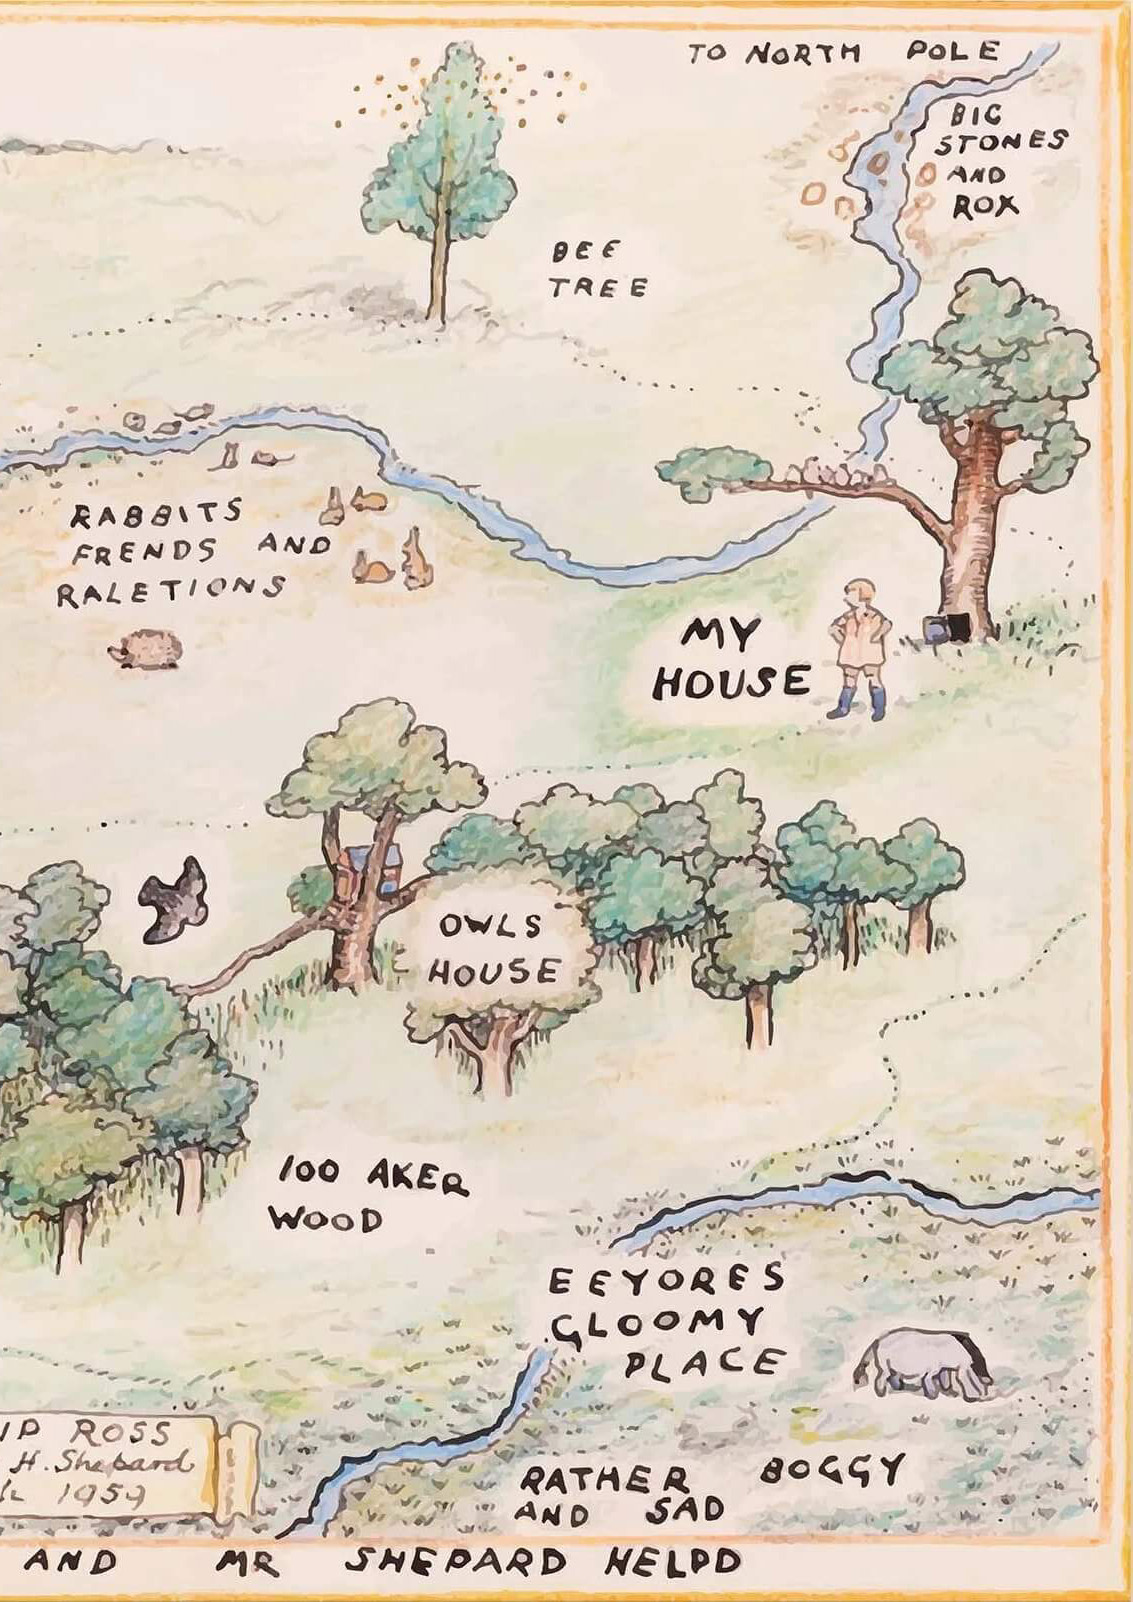 TO NORTH POLE
BIG
STONES
AND
ROX
BEE
TREE
RABBITS
FRENDS AND
RALETIONS
MY
HOUSE
OWLS
HOUSE
100 AKER
WOOD
EEYORES
GLOOMY
PLACE
RATHER BOGGY
AND SAD
ROSS
H. Shepard
1959
AND MR SHEPARD HELPD